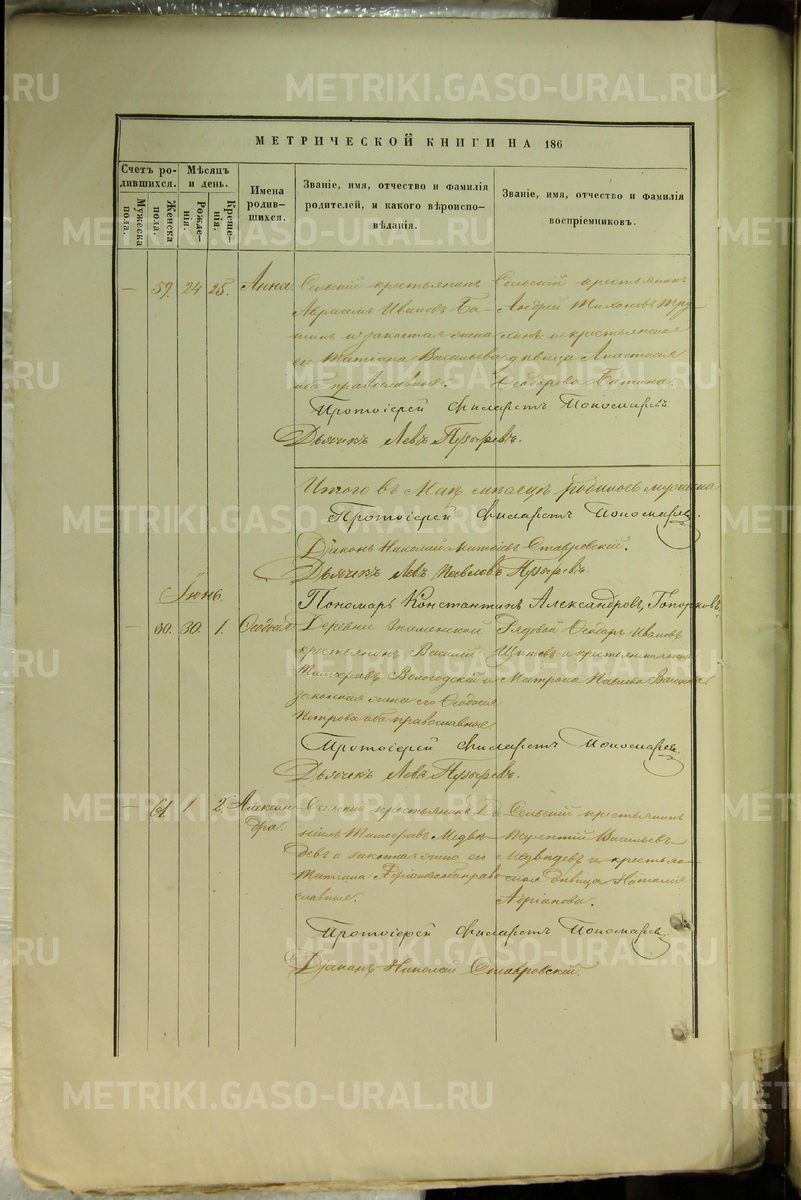 METRIKI.GASO-URAL.RU
МЕТРИЧЕСКОЙ КНИГИ НА 186
Счетъ ро-
дившихся.
Мужеска
пола.
Женска
пола.
Мѣсяцъ
и день.
Рожде-
нія.
Креще-
нія.
Имена
родив-
шихся.
Званіе, имя, отчество и фамилія
родителей, и какого вѣроиспо-
вѣданія.
Званіе, имя, отчество и фамилія
воспріемниковъ.
— 59. 24 25. Анна.
Сельскій крестьянинъ
Ивановъ Ба-
тинъ и законная жена
его Татіана Васильева
оба православные.
Сельскій крестьянинъ
Андрей Тихоновъ
и крестьянская
дѣвица Анастасія
Ѳеодорова Батина.
Протоіерей Филаретъ Пономаревъ.
Дьячекъ Левъ
Итого въ Маѣ мѣсяцѣ родилось мужеска
Протоіерей Филаретъ Пономаревъ
Діаконъ Николай Ставровскій.
Дьячекъ Левъ Павловъ
Пономарь Константинъ Александровъ Топорковъ
Іюнь.
— 60. 30. 1. Ѳеодосія
Деревни Знаменской
крестьянинъ Василій
Вологодскій и
законная жена его Ѳеодосія
Петрова оба православные.
Рядовой Ѳеодоръ Ивановъ
и
Матрона Павлова
Протоіерей Филаретъ Пономаревъ
Дьячекъ Левъ
— 61. 1. 2. Алексан-
дра.
Сельскій крестьянинъ
Тимофеевъ Медвѣ-
девъ и законная жена его
Татіана право-
славные.
Сельскій крестьянинъ
Терентій Васильевъ
Медвѣдевъ и крестьян-
ская дѣвица Наталія
Адріанова.
Протоіерей Филаретъ Пономаревъ
Діаконъ Николай Ставровскій.